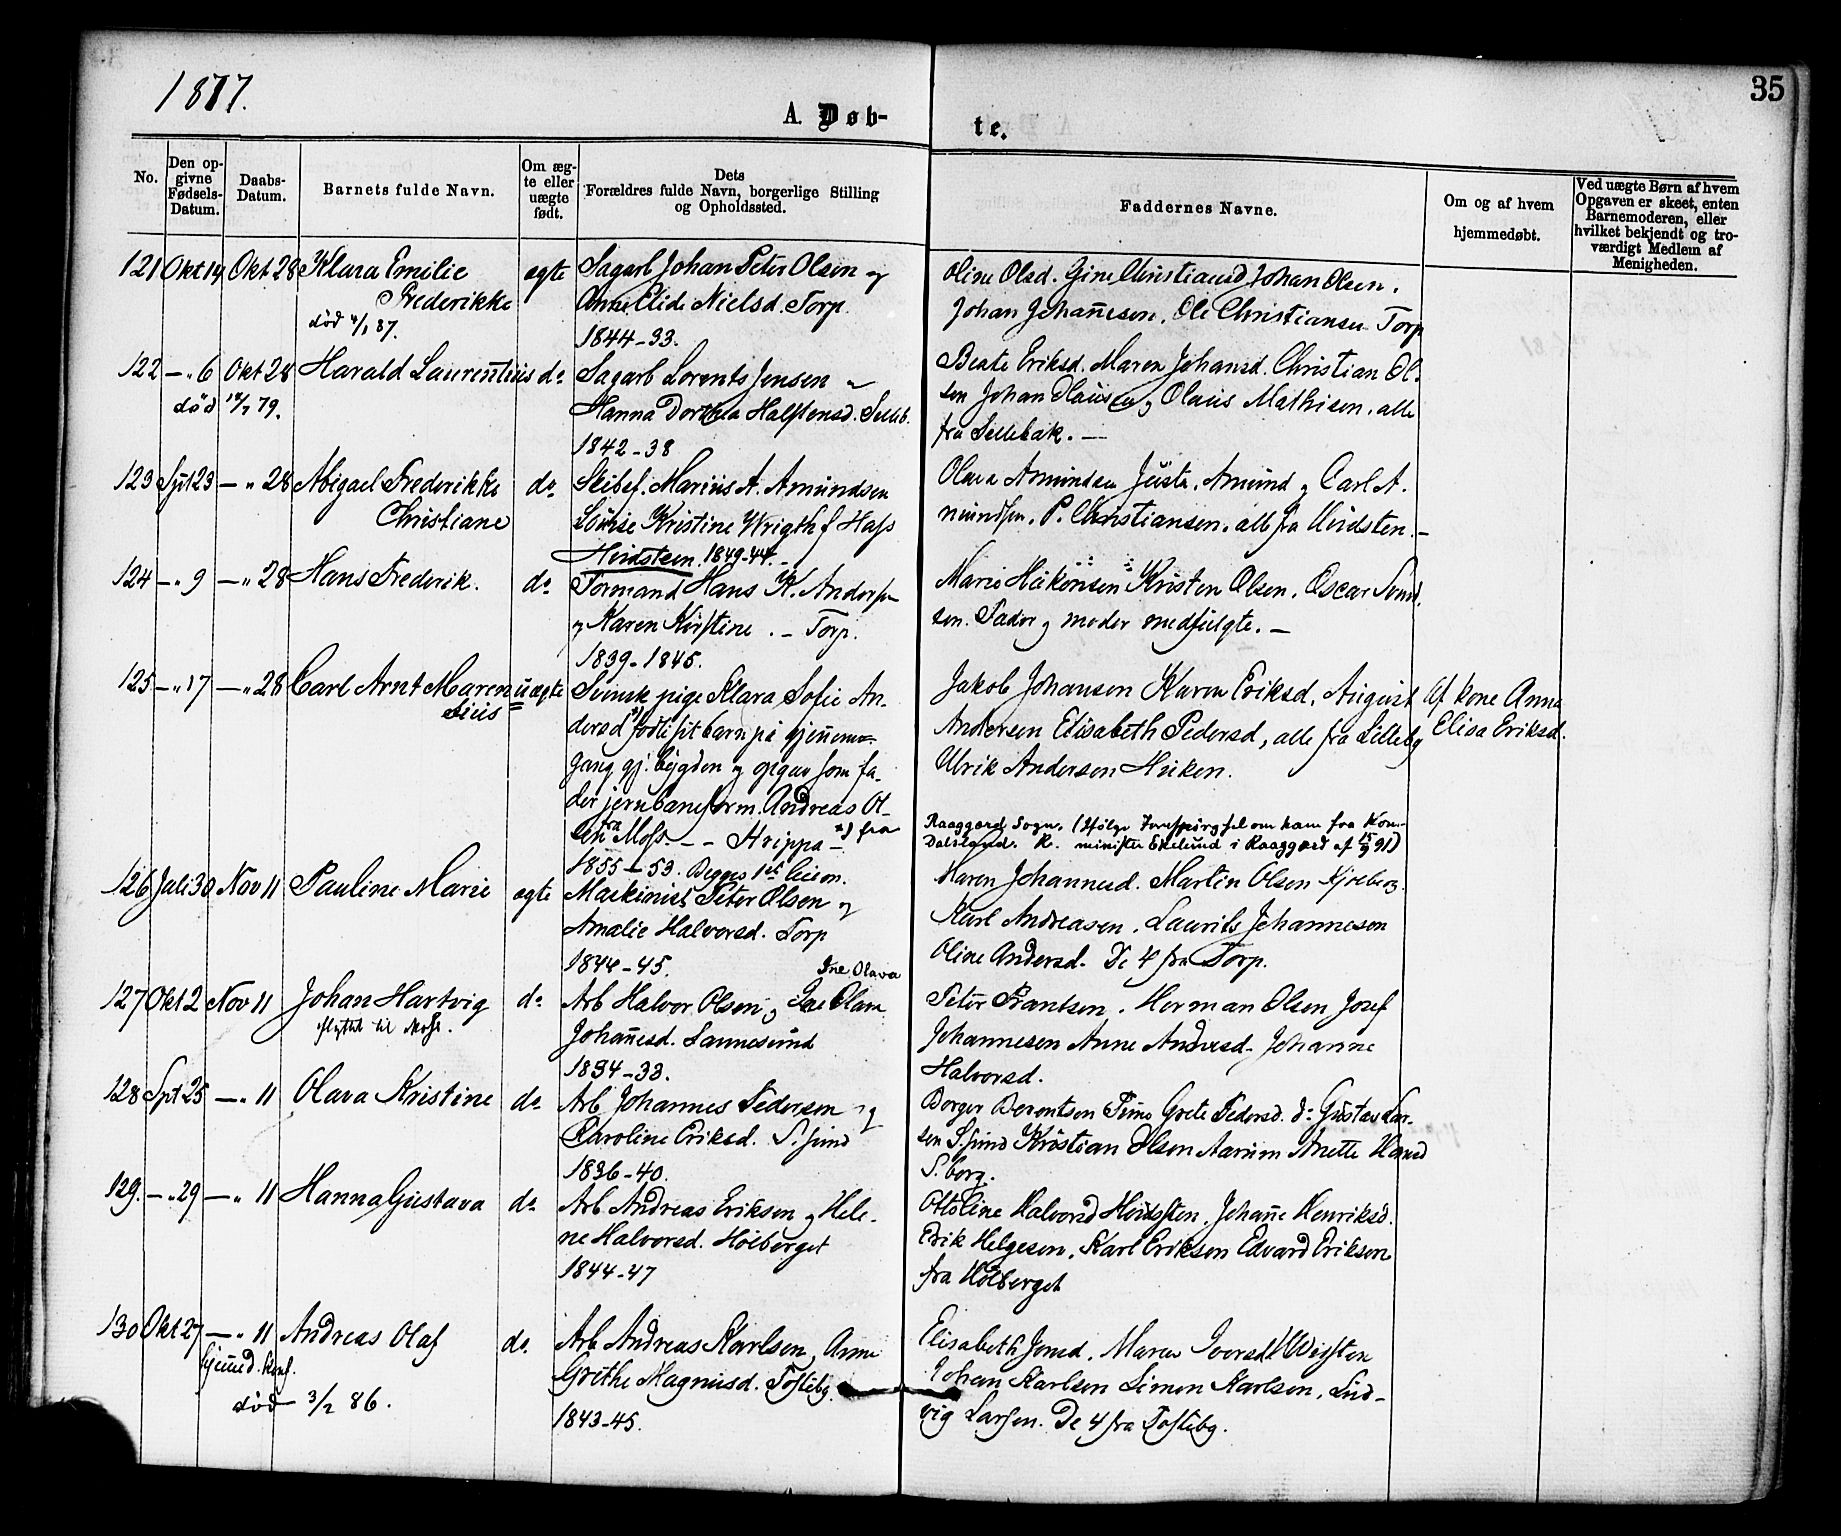 1877.
35
A. Døb-
te.
No.
Den op-
givne
Fødsels-
Datum.
Daabs-
Datum.
Barnets fulde Navn.
Om æg-
te eller
uægte
født.
Dets
Forældres fulde Navn, borgerlige Stilling
og Opholdssted.
Faddernes Navne.
Om og af hvem
hjemmedøbt.
Ved uægte Børn af hvem
Opgaven er skeet, enten
Barnemoderen, eller
hvilket bekjendt og tro-
værdigt Medlem af
Menigheden.
121 Okt 14 Okt 28 Klara Emilie
Frederikke
død 4/1 87.
ægte
Sagarb Johan Peter Olsen og
Anne Nielsd. Torp.
1844-33.
Oline Olsd. Gine Christiansd Johan Olsen.
Johan Johannesen. Ole Christiansen Torp
122 — „ 6 Okt 28 Harald Laurentius do
død /7 79.
Sagarb Lorents Jensen
Hanna Dorthea Halstensd.
1842-38
Beate Eriksd. Maren Johansd. Christian Ol-
sen Johan og Olaus Mathisen. alle
fra Lillebak. —
123 Spt 23 — „ 28 Abigael Frederikke
Christiane
do
Skibsf. Marius A. Amundsen
Louise Kristine Wrigth f Hass
Hvidsteen 1849-44 —
Olava Amundsen Amund og Carl A-
mundsen. P. Christiansen. alle fra Hvidsten. —
124 — „ 9 — „ 28 Hans Frederik.
do
Formand Hans K. Anders
og Karen Kirstine. — Torp.
1839-1845.
Marie Håkonsen Kristen Olsen. Oscar
sen. Fader og moder medfulgte. —
125 — „ 17 — „ 28 Carl Arnt Maren
sius
uægte
Svensk pige Klara Sofie An-
dersd *) født sit barn på gjennem-
gang gj. bygden og opgav som fa-
der jernbaneform. Andreas Ol-
sen fra Moss — — Strippa — *) fra
1855-53. Begges 1ste leierm.
Jakob Johansen Karen Eriksd. August
Andersen Elisabeth Pedersd, alle fra Lillebg
Ulrik Andersen Huken.
Af kone Anna
Elisa Eriksd.
Raaggærd Sogn. (Ifølge om ham fra Kom-
Dalsland. R. minister Ekelund i Raaggærd af 15/9 91)
126 Juli 30 Nov 11 Pauline Marie
ægte
Maskinist Peter Olsen og
Amalie Halvorsd. Torp
1844-45.
Maren Johannesd. Martin Olsen Kjølberg.
Karl Andreasen. Laurits Johannesen
Oline Andersd. De 4 fra Torp.
127 Okt 2 Nov 11 Johan Hartvig
flyttet til Moss.
do
Ine Olava
Arb Halvor Olsen og Ine Olava
Johannesd. Sannesund
1834-33.
Peter Frantsen. Herman Olsen Josef
Johannesen Anne Andersd. Johanne
Halvorsd.
128 Spt 25 — „ 11 Olava Kristine
do
Arb Johannes Pedersen og
Karoline Eriksd. S. sund
1836-40.
Borger Berentsen Grete Pedersd. do Gustav Lar-
sen S. sund Kristian Olsen Aarum Anette Hansd
S. borg.
129. — „ 29 — „ 11 Hanna Gustava
do
Arb Andreas Eriksen og Hele-
ne Halvorsd. Holberget
1844-47
Ottoline Halvorsd Hvidsten. Johanne Henriksd.
Erik Helgesen. Karl Eriksen Edvard Eriksen
fra Holberget
130 Okt 27 — „ 11 Andreas Olaf
hjemmed.
død 3/2 86.
do.
Arb Andreas Karlsen, Anne
Grethe Magnusd. Tofteb.
1843-45.
Elisabeth Jensd. Maren Iversd
Johan Karlsen Simon Karlsen. Lud-
vig Larsen. De 4 fra Toftebg.